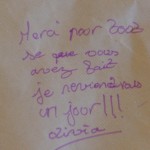 Merci pour tout
ce que vous
avez fait
je reviendrais
un jour!!!
Olivia